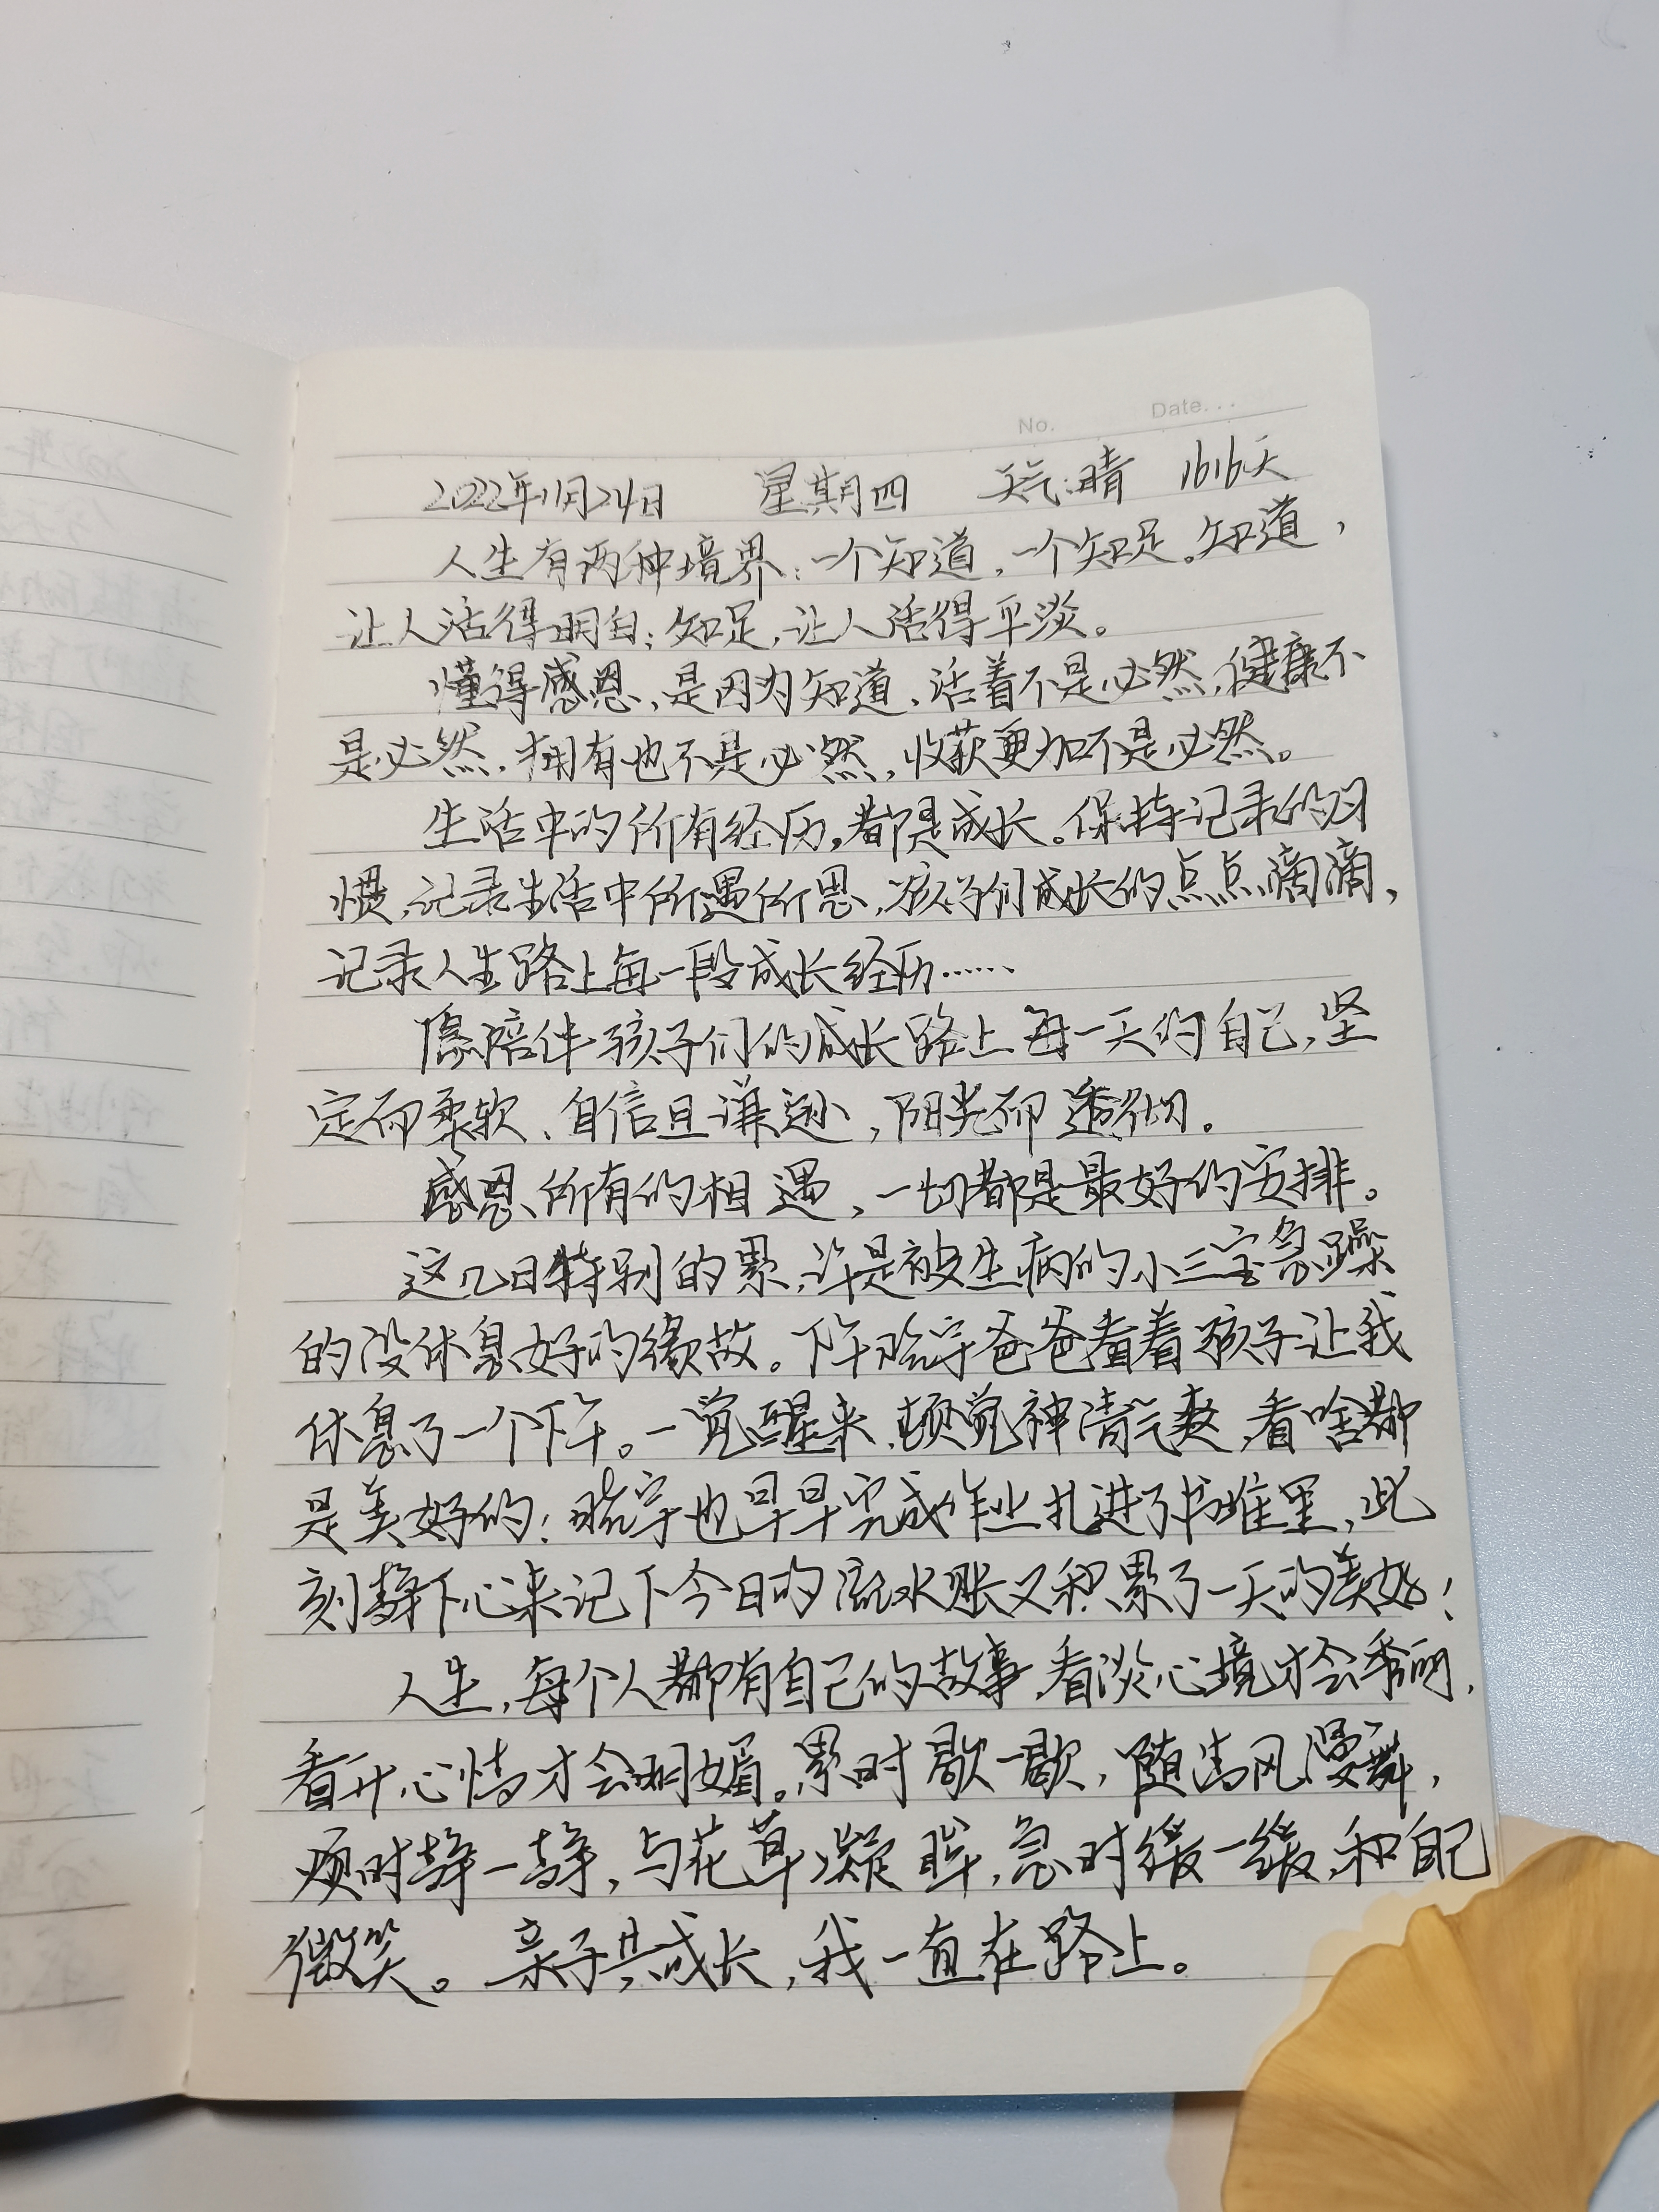 No. Date...
2022年11月24日 星期四 天气:晴 1616天
人生有两种境界:一个知道,一个知足。知道,
让人活得明白;知足,让人活得平淡。
懂得感恩,是因为知道,活着不是必然,健康不
是必然,拥有也不是必然,收获更加不是必然。
生活中的所有经历,都是成长。保持记录的习
惯,记录生活中所遇所思,孩子们成长的点点滴滴,
记录人生路上每一段成长经历……
陪伴孩子们的成长路上每一天的自己,坚
定而柔软、自信且谦逊,阳光而透彻。
感恩所有的相遇,一切都是最好的安排。
这几日特别的累,许是被生病的小三宝急躁
的没休息好的缘故。下午皓宇爸爸看着孩子让我
休息了一个下午。一觉醒来,顿觉神清气爽,看啥都
是美好的;皓宇也早早完成作业扎进了书堆里,此
刻静下心来记下今日的流水账又积累了一天的美好!
人生,每个人都有自己的故事,看淡心境才会秀丽,
看开心情才会明媚。累时歇一歇,随清风漫舞,
烦时静一静,与花草凝眸,急时缓一缓,和自己
微笑。亲子共成长,我一直在路上。